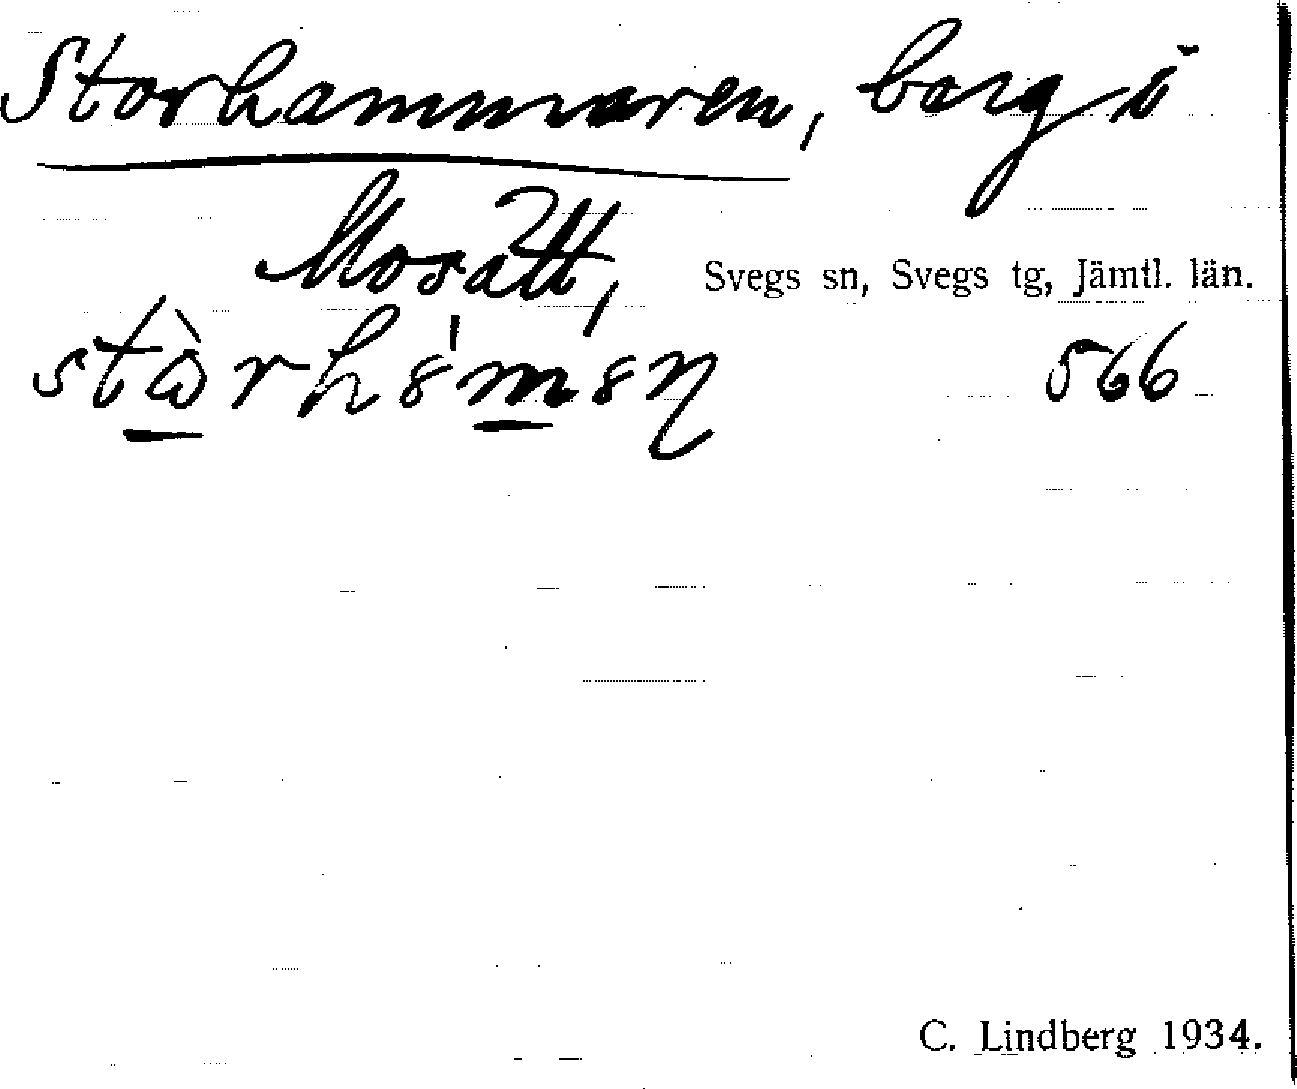 Storhammaren, berg i
Mosätt, Svegs sn, Svegs tg, Jämtl. län.
566
C. Lindberg 1934.